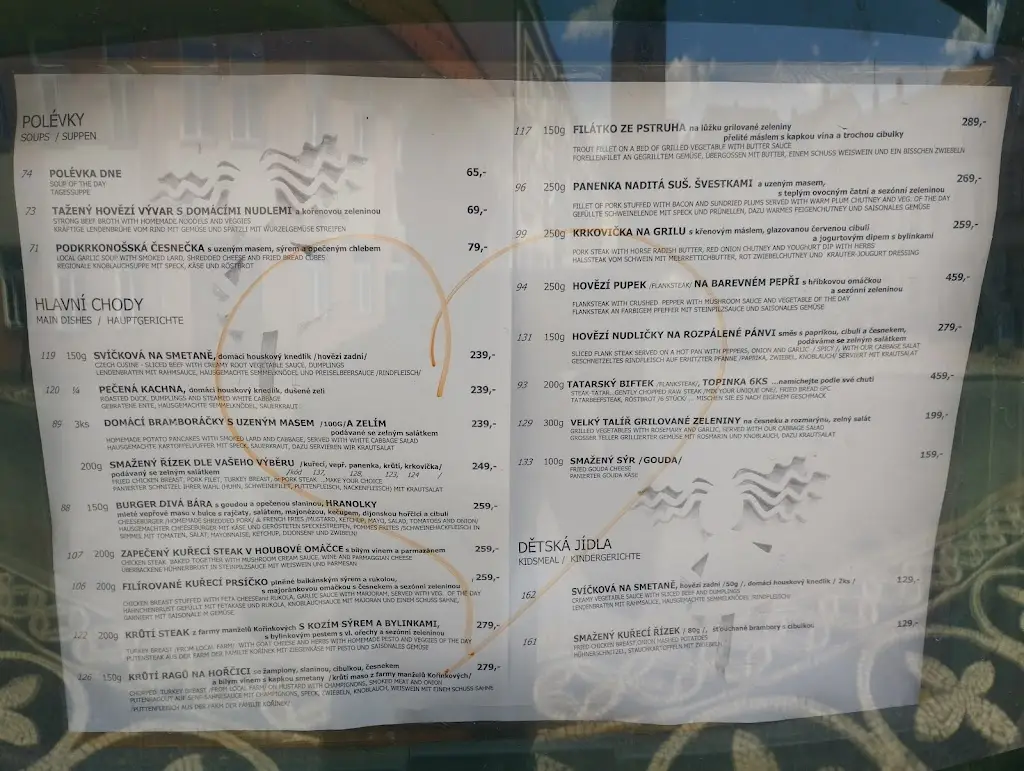 POLÉVKY
SOUPS / SUPPEN
74 POLÉVKA DNE 65,-
SOUP OF THE DAY
TAGESSUPPE
73 TAŽENÝ HOVĚZÍ VÝVAR S DOMÁCÍMI NUDLEMI a kořenovou zeleninou 69,-
STRONG BEEF BROTH WITH HOMEMADE NOODELS AND VEGGIES
KRÄFTIGE LENDENBRÜHE VOM RIND MIT GEMÜSE UND SPÄTZLI MIT WURZELGEMÜSE STREIFEN
71 PODKRKONOŠSKÁ ČESNEČKA s uzeným masem, sýrem a opečeným chlebem 79,-
LOCAL GARLIC SOUP WITH SMOKED LARD, SHREDDED CHEESE AND FRIED BREAD CUBES
REGIONALE KNOBLAUCHSUPPE MIT SPECK, KÄSE UND RÖSTBROT
HLAVNÍ CHODY
MAIN DISHES / HAUPTGERICHTE
119 150g SVÍČKOVÁ NA SMETANĚ, domácí houskový knedlík /hovězí zadní/ 239,-
CZECH CUSINE - SLICED BEEF WITH CREAMY ROOT VEGETABLE SAUCE, DUMPLINGS
LENDENBRATEN MIT RAHMSAUCE, HAUSGEMACHTE SEMMELKNÖDEL UND PREISELBEERSAUCE /RINDFLEISCH/
120 ¼ PEČENÁ KACHNA, domácí houskový knedlík, dušené zelí 239,-
ROASTED DUCK, DUMPLINGS AND STEAMED WHITE CABBAGE
GEBRATENE ENTE, HAUSGEMACHTE SEMMELKNÖDEL, SAUERKRAUT
89 3ks DOMÁCÍ BRAMBORÁČKY S UZENÝM MASEM /100G/A ZELÍM 239,-
podávané se zelným salátkem
HOMEMADE POTATO PANCAKES WITH SMOKED LARD AND CABBAGE, SERVED WITH WHITE CABBAGE SALAD
HAUSGEMACHTE KARTOFFELPUFFER MIT SPECK, SAUERKRAUT, DAZU SERVIEREN WIR KRAUTSALAT
200g SMAŽENÝ ŘÍZEK DLE VAŠEHO VÝBĚRU /kuřecí, vepř. panenka, krůtí, krkovička/ 249,-
podávaný se zelným salátkem /kód 137, 128, 123, 124 /
FRIED CHICKEN BREAST, PORK FILET, TURKEY BREAST, or PORK STEAK ...MAKE YOUR CHOICE
PANIERTER SCHNITZEL IHRER WAHL (HUHN, SCHWEINEFILET, PUTTENFLEISCH, NACKENFLEISCH) MIT KRAUTSALAT
88 150g BURGER DIVÁ BÁRA s goudou a opečenou slaninou, HRANOLKY 259,-
mleté vepřové maso v bulce s rajčaty, salátem, majonézou, kečupem, dijonskou hořčicí a cibulí
CHEESEBURGER /HOMEMADE SHREDDED PORK/ & FRENCH FRIES /MUSTARD, KETCHUP, MAYO, SALAD, TOMATOES AND ONION/
HAUSGEMACHTER CHEESEBURGER MIT KÄSE UND GERÖSTETEN SPECKSTREIFEN, POMMES FRITES /SCHWEINEHACKFLEISCH IN
SEMMEL MIT TOMATEN, SALAT, MAYONNAISE, KETCHUP, DIJONSENF UND ZWIEBELN/
107 200g ZAPEČENÝ KUŘECÍ STEAK V HOUBOVÉ OMÁČCE s bílým vínem a parmazánem 259,-
CHICKEN STEAK BAKED TOGETHER WITH MUSHROOM CREAM SAUCE, WINE AND PARMAGGIAN CHEESE
ÜBERBACKENE HÜHNERBRUST IN STEINPILZSAUCE MIT WEISSWEIN UND PARMESAN
106 200g FILÍROVANÉ KUŘECÍ PRSÍČKO plněné balkánským sýrem a rukolou, 259,-
s majoránkovou omáčkou s česnekem a sezónní zeleninou
CHICKEN BREAST STUFFED WITH FETA CHEESEAND RUKOLA, GARLIC SAUCE WITH MARJORAM, SERVED WITH VEG. OF THE DAY
HÄHNCHENBRUST GEFÜLLT MIT FETAKÄSE UND RUKOLA, KNOBLAUCHSAUCE MIT MAJORAN UND EINEM SCHUSS SAHNE,
GARNIERT MIT SAISONALE M GEMÜSE
122 200g KRŮTÍ STEAK z farmy manželů Kořínkových S KOZÍM SÝREM A BYLINKAMI, 279,-
s bylinkovým pestem s vl. ořechy a sezónní zeleninou
TURKEY BREAST /FROM LOCAL FARM/ WITH GOAT CHEESE AND HERBS WITH HOMEMADE PESTO AND VEGGIES OF THE DAY
PUTENSTEAK AUS DER FARM DER FAMILIE KOŘÍNEK MIT ZIEGENKÄSE MIT PESTO UND SAISONALES GEMÜSE
126 150g KRŮTÍ RAGŮ NA HOŘČICI se žampiony, slaninou, cibulkou, česnekem 279,-
a bílým vínem s kapkou smetany /krůtí maso z farmy manželů Kořínkových/
CHOPPED TURKEY BREAST /FROM LOCAL FARM/ ON MUSTARD WITH CHAMPIGNONS, SMOKED MEAT AND ONION
PUTENRAGOUT AUF SENF-RAHMESAUCE MIT CHAMPIGNONS, SPECK, ZWIEBELN, KNOBLAUCH, WEISWEIN MIT EINEM SCHUSS SAHNE
/PUTTENFLEISCH AUS DER FARM DER FAMILIE KOŘÍNEK/
117 150g FILÁTKO ZE PSTRUHA na lůžku grilované zeleniny 289,-
přelité máslem s kapkou vína a trochou cibulky
TROUT FILLET ON A BED OF GRILLED VEGETABLE WITH BUTTER SAUCE
FORELLENFILET AN GEGRILLTEM GEMÜSE, ÜBERGOSSEN MIT BUTTER, EINEM SCHUSS WEISWEIN UND EIN BISSCHEN ZWIEBELN
96 250g PANENKA NADITÁ SUŠ. ŠVESTKAMI a uzeným masem, 269,-
s teplým ovocným čatní a sezónní zeleninou
FILLET OF PORK STUFFED WITH BACON AND SUNDRIED PLUMS SERVED WITH WARM PLUM CHUTNEY AND VEG. OF THE DAY
GEFÜLLTE SCHWEINELENDE MIT SPECK UND PRÜNELLEN, DAZU WARMES FEIGENCHUTNEY UND SAISONALES GEMÜSE
99 250g KRKOVIČKA NA GRILU s křenovým máslem, glazovanou červenou cibulí 259,-
a jogurtovým dipem s bylinkami
PORK STEAK WITH HORSE RADISH BUTTER, RED ONION CHUTNEY AND YOUGHURT DIP WITH HERBS
HALSSTEAK VOM SCHWEIN MIT MEERRETTICHBUTTER, ROT ZWIEBELCHUTNEY UND KRAUTER-JOUGURT DRESSING
94 250g HOVĚZÍ PUPEK /FLANKSTEAK/ NA BAREVNÉM PEPŘI s hříbkovou omáčkou 459,-
a sezónní zeleninou
FLANKSTEAK WITH CRUSHED PEPPER WITH MUSHROOM SAUCE AND VEGETABLE OF THE DAY
FLANKSTEAK AN FARBIGEM PFEFFER MIT STEINPILZSAUCE UND SAISONALES GEMÜSE
131 150g HOVĚZÍ NUDLIČKY NA ROZPÁLENÉ PÁNVI směs s paprikou, cibulí a česnekem, 279,-
podáváme se zelným salátem
SLICED FLANK STEAK SERVED ON A HOT PAN WITH PEPPERS, ONION AND GARLIC / SPICY/, WITH OUR CABBAGE SALAT
GESCHNETZELTES RINDFLEISCH AUF ERHITZTER PFANNE /PAPRIKA, ZWIEBEL, KNOBLAUCH/ SERVIERT MIT KRAUTSALAT
93 200g TATARSKÝ BIFTEK /FLANKSTEAK/, TOPINKA 6KS ...namíchejte podle své chuti 459,-
STEAK-TATAR...GENTLY CHOPPED RAW STEAK (MIX YOUR UNIQUE ONE), FRIED BREAD 6PC
TATARBEEFSTEAK, RÖSTBROT /6 STÜCK/ ... MISCHEN SIE ES NACH EIGENEM GESCHMACK
129 300g VELKÝ TALÍŘ GRILOVANÉ ZELENINY na česneku a rozmarýnu, zelný salát 199,-
GRILLED VEGETABLES WITH ROSEMARY AND GARLIC, SERVED WITH OUR CABBAGE SALAD
GROSSER TELLER GRILLIERTER GEMÜSE MIT ROSMARIN UND KNOBLAUCH, DAZU KRAUTSALAT
133 100g SMAŽENÝ SÝR /GOUDA/ 159,-
FRIED GOUDA CHEESE
PANIERTER GOUDA KÄSE
DĚTSKÁ JÍDLA
KIDSMEAL / KINDERGERICHTE
162 SVÍČKOVÁ NA SMETANĚ, hovězí zadní /50g /, domácí houskový knedlík / 2ks / 129,-
CREAMY VEGETABLE SAUCE WITH SLICED BEEF AND DUMPLINGS
LENDENBRATEN MIT RAHMSAUCE, HAUSGEMACHTE SEMMELKNÖDEL /RINDFLEISCH/
161 SMAŽENÝ KUŘECÍ ŘÍZEK / 80g /, šťouchané brambory s cibulkou 129,-
FRIED CHICKEN BREAST ON MASHED POTATOES